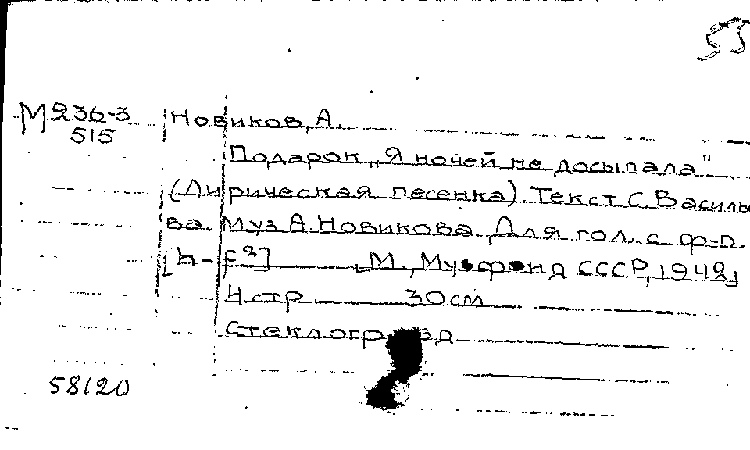 53
М 236-3
515
Новиков, А.
Подарок „Я ночей не досыпала"
(Лирическая песенка). Текст С. Василь
ва. Муз А. Новикова. Для гол. с ф-п.
[h-f²] М., Музфонд СССР, 1942,
4 стр 30 см
58120